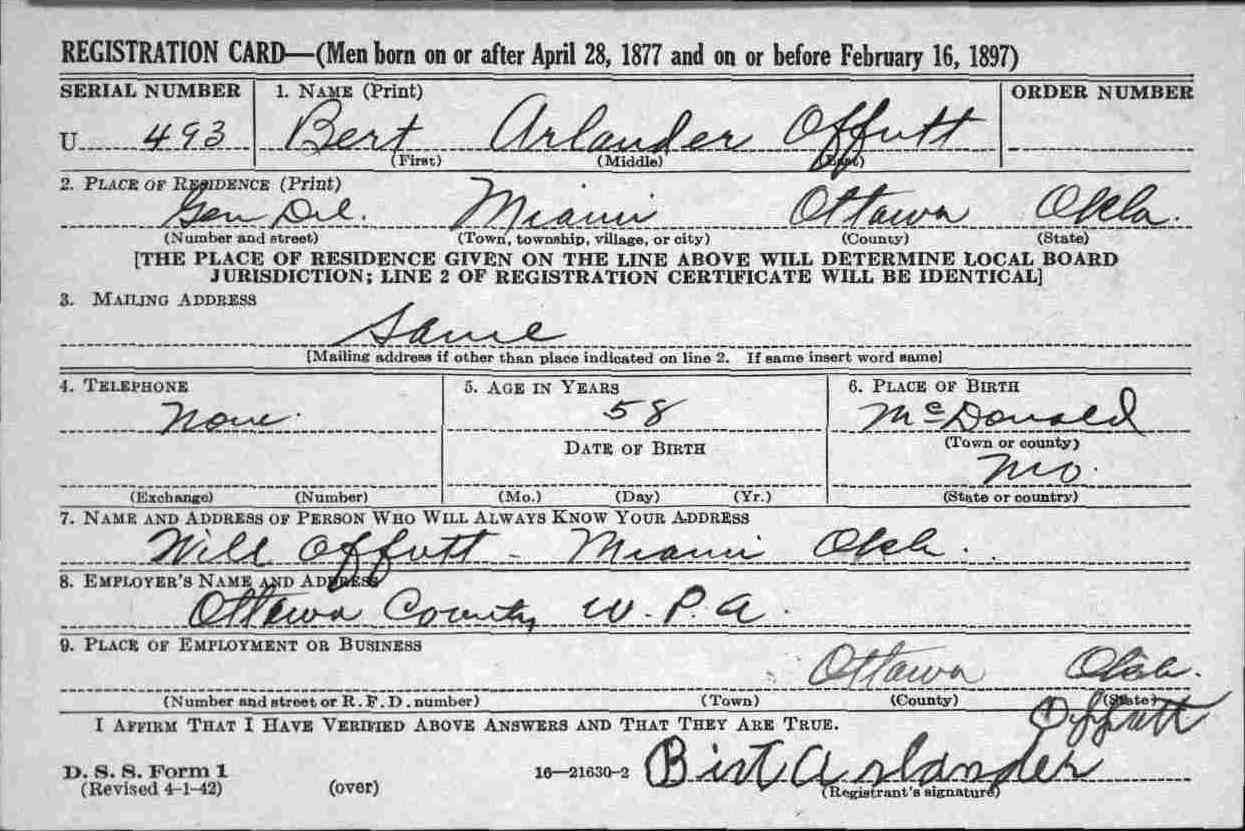 REGISTRATION CARD—(Men born on or after April 28, 1877 and on or before February 16, 1897)
SERIAL NUMBER 1. NAME (Print) ORDER NUMBER
U 493 Bert Arlander Offutt
(First) (Middle) (Last)
2. PLACE OF RESIDENCE (Print)
Gen Del. Miami Ottawa Okla.
(Number and street) (Town, township, village, or city) (County) (State)
[THE PLACE OF RESIDENCE GIVEN ON THE LINE ABOVE WILL DETERMINE LOCAL BOARD
JURISDICTION; LINE 2 OF REGISTRATION CERTIFICATE WILL BE IDENTICAL]
3. MAILING ADDRESS
Same
[Mailing address if other than place indicated on line 2. If same insert word same]
4. TELEPHONE 5. AGE IN YEARS 6. PLACE OF BIRTH
None. 58 McDonald
DATE OF BIRTH (Town or county)
Mo.
(Exchange) (Number) (Mo.) (Day) (Yr.) (State or country)
7. NAME AND ADDRESS OF PERSON WHO WILL ALWAYS KNOW YOUR ADDRESS
Will Offutt - Miami Okla.
8. EMPLOYER'S NAME AND ADDRESS
Ottawa County W.P.A.
9. PLACE OF EMPLOYMENT OR BUSINESS
Ottawa Okla.
(Number and street or R.F.D. number) (Town) (County) (State)
I AFFIRM THAT I HAVE VERIFIED ABOVE ANSWERS AND THAT THEY ARE TRUE.
Offutt
D. S. S. Form 1 16—21630-2 Birt Arlander
(Revised 4-1-42) (over) (Registrant's signature)